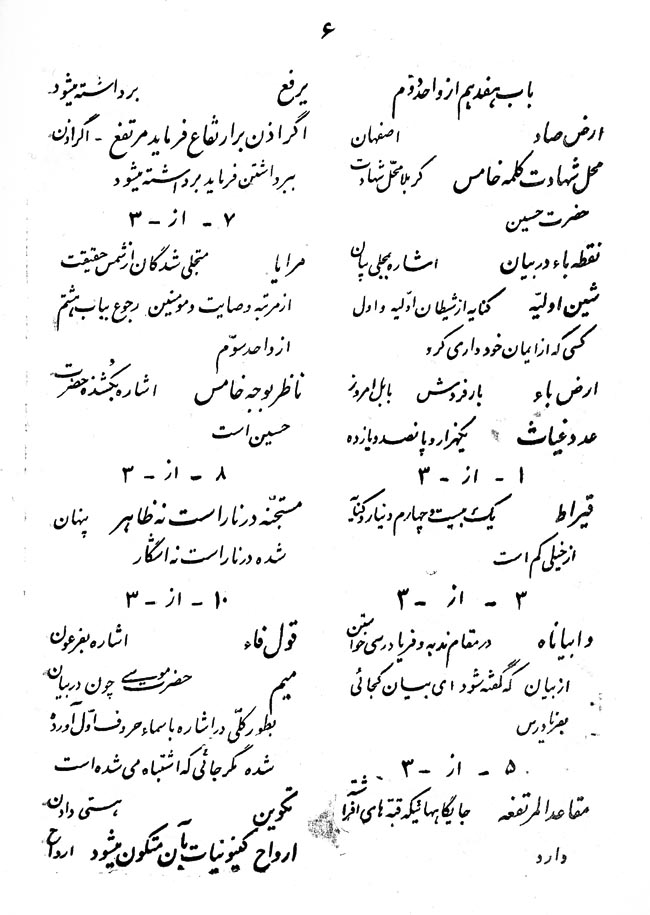 ۶
باب هفدهم از واحد دوم
ارض صاد اصفهان
محل شهادت کلمه خامس کربلا محل شهادت
حضرت حسین
نقطه باء در بیان اشاره بجلی بیان
شین اولیه کنایه از شیطان اولیه و اول
کسی که از ایمان خود داری کرد
ارض باء بارفروش بابل امروز
عدد غیاث یکهزار و پانصد و یازده
۱ - از - ۳
قیراط یک بیست و چهارم دینار و کنایه
از خیلی کم است
۳ - از - ۳
وا بیاناه در مقام ندبه و فریادرسی خواستن
از بیان که گفته شود ای بیان کجائی
بفریادرس
۵ - از - ۳
مقاعد المرتفعه جایگاههائیکه قبه های افراشته
دارد
یرفع برداشته میشود
اگر اذن بر ارتفاع فرماید مرتفع - اگر اذن
ببرداشتن فرماید برداشته میشود
۷ - از - ۳
مرایا متجلی شدگان از شمس حقیقت
از مرتبه وصایت و مومنین رجوع بباب هشتم
از واحد سوّم
ناظر بوجه خامس اشاره بکشنده حضرت
حسین است
۸ - از - ۳
مستجنّه در نار است نه ظاهر پنهان
شده در نار است نه آشکار
۱۰ - از - ۳
قول فاء اشاره بفرعون
میم حضرت موسی چون در بیان
بطور کلّی در اشاره باسماء حروف اوّل آورده
شده مگر جائی که اشتباه می شده است
تکوین هستی دادن
ارواح کینونیات بآن متکون میشود ارواح